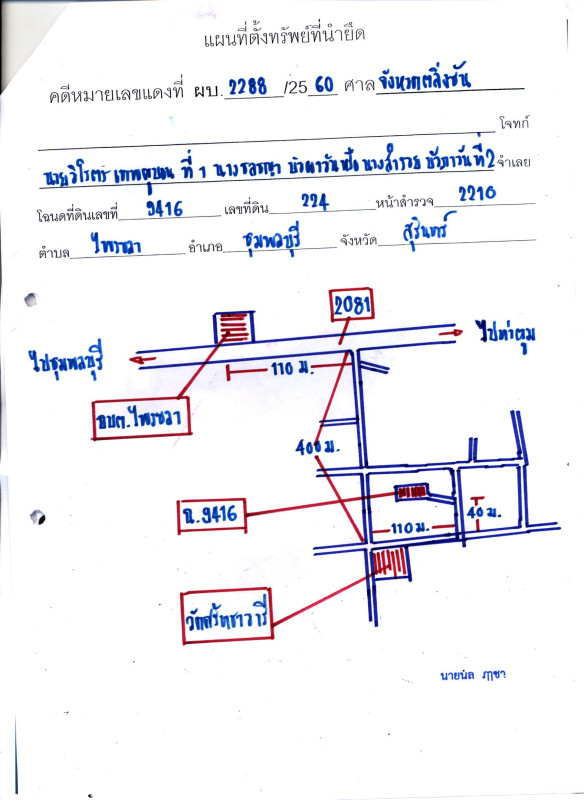 แผนที่ตั้งทรัพย์ที่นำยึด
คดีหมายเลขแดงที่ ผบ. 2288 /25 60 ศาล จังหวัดตลิ่งชัน
โจทก์
ที่ 1 นาง นางสำรวย ที่ 2 จำเลย
โฉนดที่ดินเลขที่ 9416 เลขที่ดิน 224 หน้าสำรวจ 2210
ตำบล ไพรขลา อำเภอ ชุมพลบุรี จังหวัด สุรินทร์
2081
ไปชุมพลบุรี
ไปท่าตูม
110 ม.
อบต.ไพรขลา
400 ม.
ฉ.9416
110 ม.
40 ม.
นายนัล ภาษา